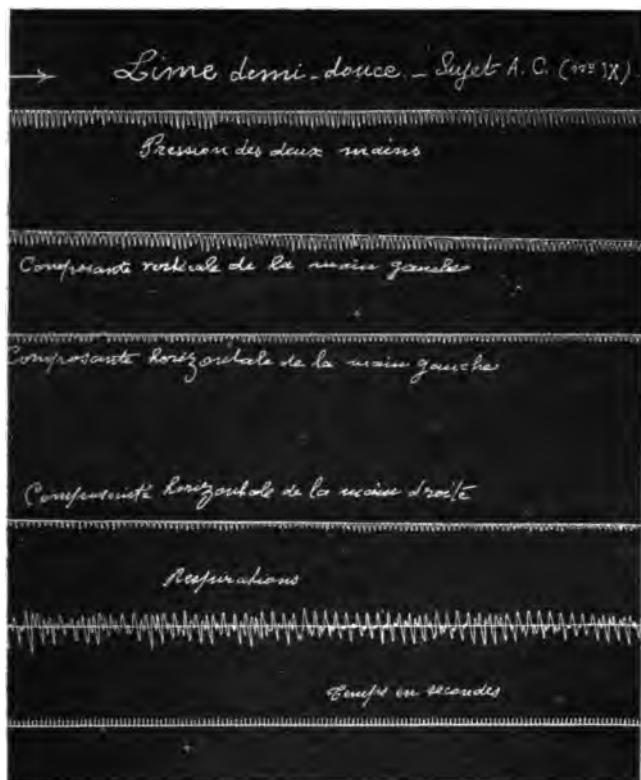 Lime demi-douce - Sujet A.C. (nº IX)
Pression des deux mains
Composante verticale de la main gauche
Composante horizontale de la main gauche
Composante horizontale de la main droite
Respirations
Temps en secondes